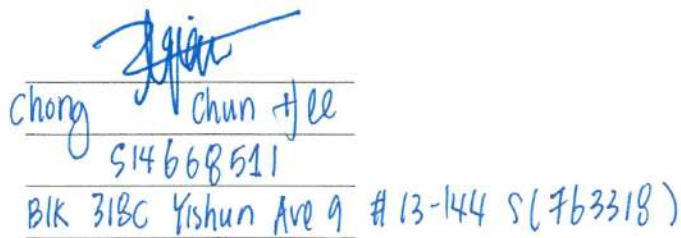 Chong Chun Hee
S1466851I
Blk 318C Yishun Ave 9 #13-144 S(763318)